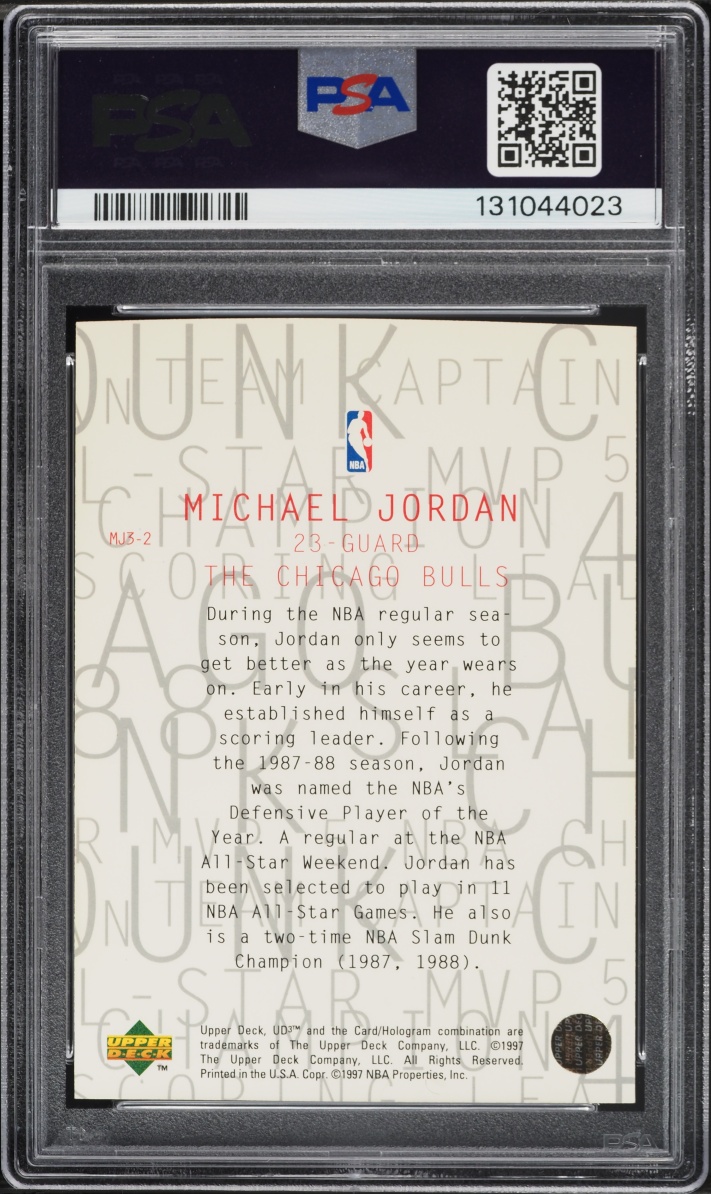 PSA
PSA
131044023
DUNK C
ON TEAM CAPTAIN
NBA
L-STAR MVP 5
MICHAEL JORDAN
CHAMPION 4
MJ3-2
23-GUARD
THE CHICAGO BULLS
SCORING LEAD
During the NBA regular sea-
son, Jordan only seems to
get better as the year wears
on. Early in his career, he
established himself as a
scoring leader. Following
the 1987-88 season, Jordan
was named the NBA's
Defensive Player of the
Year. A regular at the NBA
All-Star Weekend. Jordan has
been selected to play in 11
NBA All-Star Games. He also
is a two-time NBA Slam Dunk
Champion (1987, 1988).
Upper Deck, UD³™ and the Card/Hologram combination are
trademarks of The Upper Deck Company, LLC. ©1997
The Upper Deck Company, LLC. All Rights Reserved.
Printed in the U.S.A. Copr. ©1997 NBA Properties, Inc.
UPPER
DECK
™
PSA